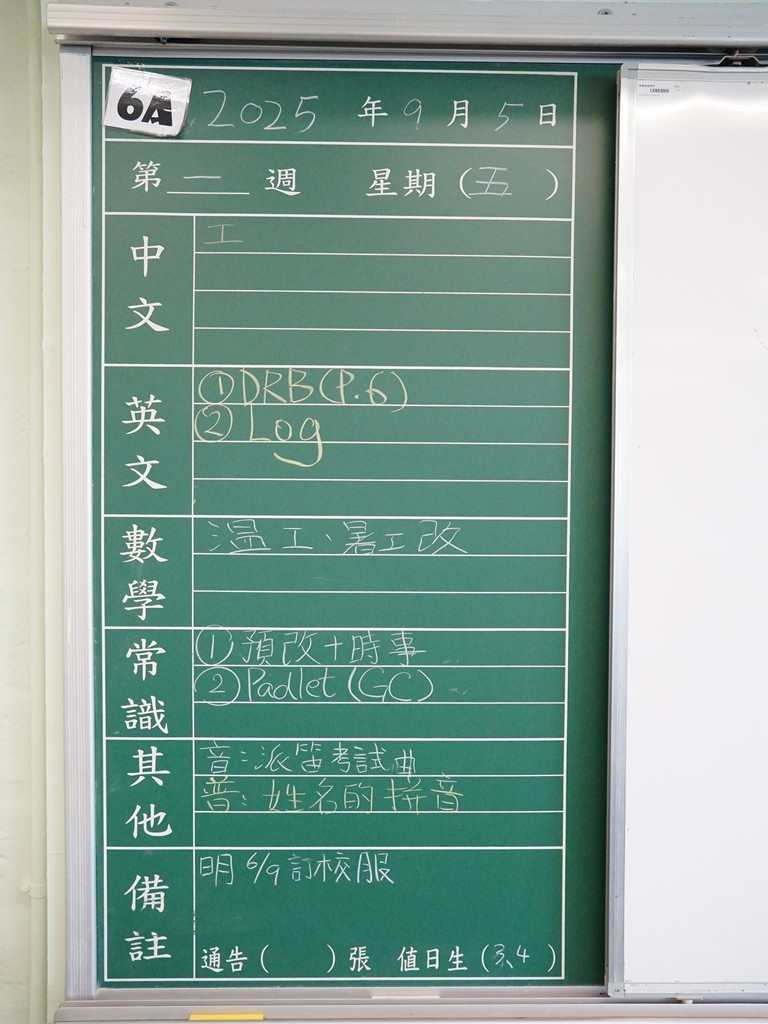 6A 2025 年 9 月 5 日
第 一 週 星期 (五)
中文
工
英文
① DRB (P.6)
② Log
數學
溫工、暑工改
常識
① 預改+時事
② Padlet (GC)
其他
音:派笛考試曲
普:姓名的拼音
備註
明 6/9 訂校服
通告 ( ) 張 值日生 (3、4)